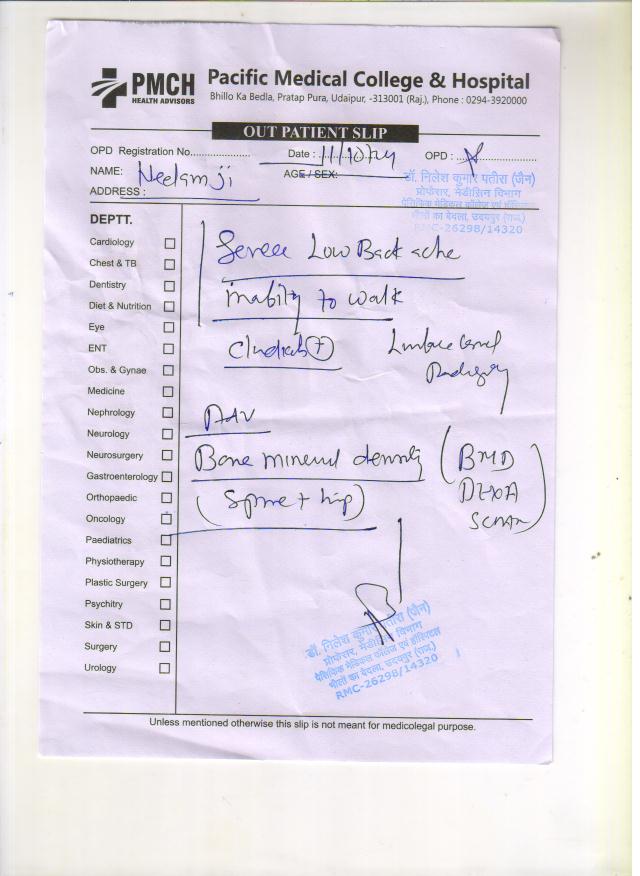 PMCH
HEALTH ADVISORS
Pacific Medical College & Hospital
Bhillo Ka Bedla, Pratap Pura, Udaipur, -313001 (Raj.), Phone : 0294-3920000
OUT PATIENT SLIP
OPD Registration No.................... Date : 11/10/24 OPD :
NAME: Neelam ji AGE / SEX:
ADDRESS :
डॉ. निलेश कुमार पतीरा (जैन)
प्रोफेसर, मेडीसिन विभाग
पेसिफिक मेडिकल कॉलेज एवं हॉस्पिटल
भीलों का बेदला, उदयपुर (राज.)
RMC-26298/14320
DEPTT.
Cardiology
Chest & TB
Dentistry
Diet & Nutrition
Eye
ENT
Obs. & Gynae
Medicine
Nephrology
Neurology
Neurosurgery
Gastroenterology
Orthopaedic
Oncology
Paediatrics
Physiotherapy
Plastic Surgery
Psychitry
Skin & STD
Surgery
Urology
Severe Low Back ache
inability to walk
+
Adv
Bone mineral density (BMD
DEXA
SCAN)
(Spine + hip)
डॉ. निलेश कुमार पतीरा (जैन)
प्रोफेसर, मेडीसिन विभाग
पेसिफिक मेडिकल कॉलेज एवं हॉस्पिटल
भीलों का बेदला, उदयपुर (राज.)
RMC-26298/14320
Unless mentioned otherwise this slip is not meant for medicolegal purpose.